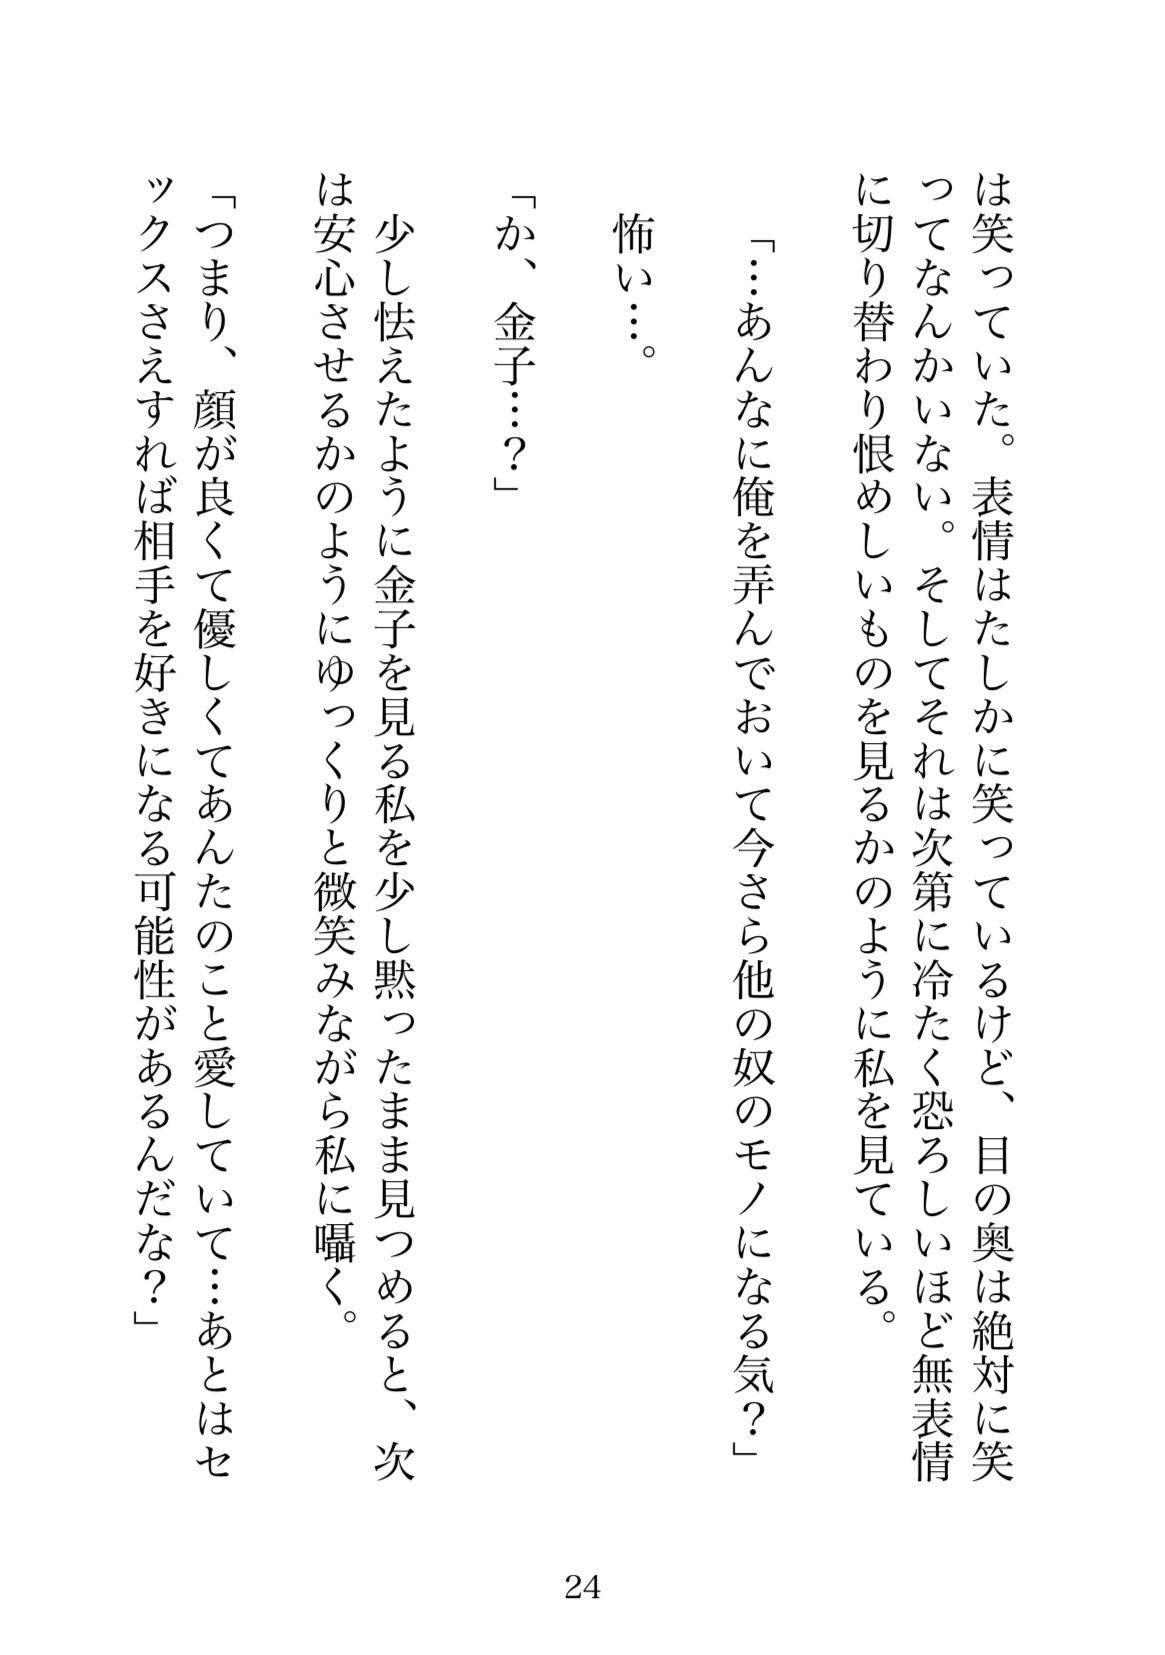 は笑っていた。表情はたしかに笑っているけど、目の奥は絶対に笑
ってなんかいない。そしてそれは次第に冷たく恐ろしいほど無表情
に切り替わり恨めしいものを見るかのように私を見ている。
「…あんなに俺を弄んでおいて今さら他の奴のモノになる気？」
怖い…。
「か、金子…？」
少し怯えたように金子を見る私を少し黙ったまま見つめると、次
は安心させるかのようにゆっくりと微笑みながら私に囁く。
「つまり、顔が良くて優しくてあんたのこと愛していて…あとはセ
ックスさえすれば相手を好きになる可能性があるんだな？」
24